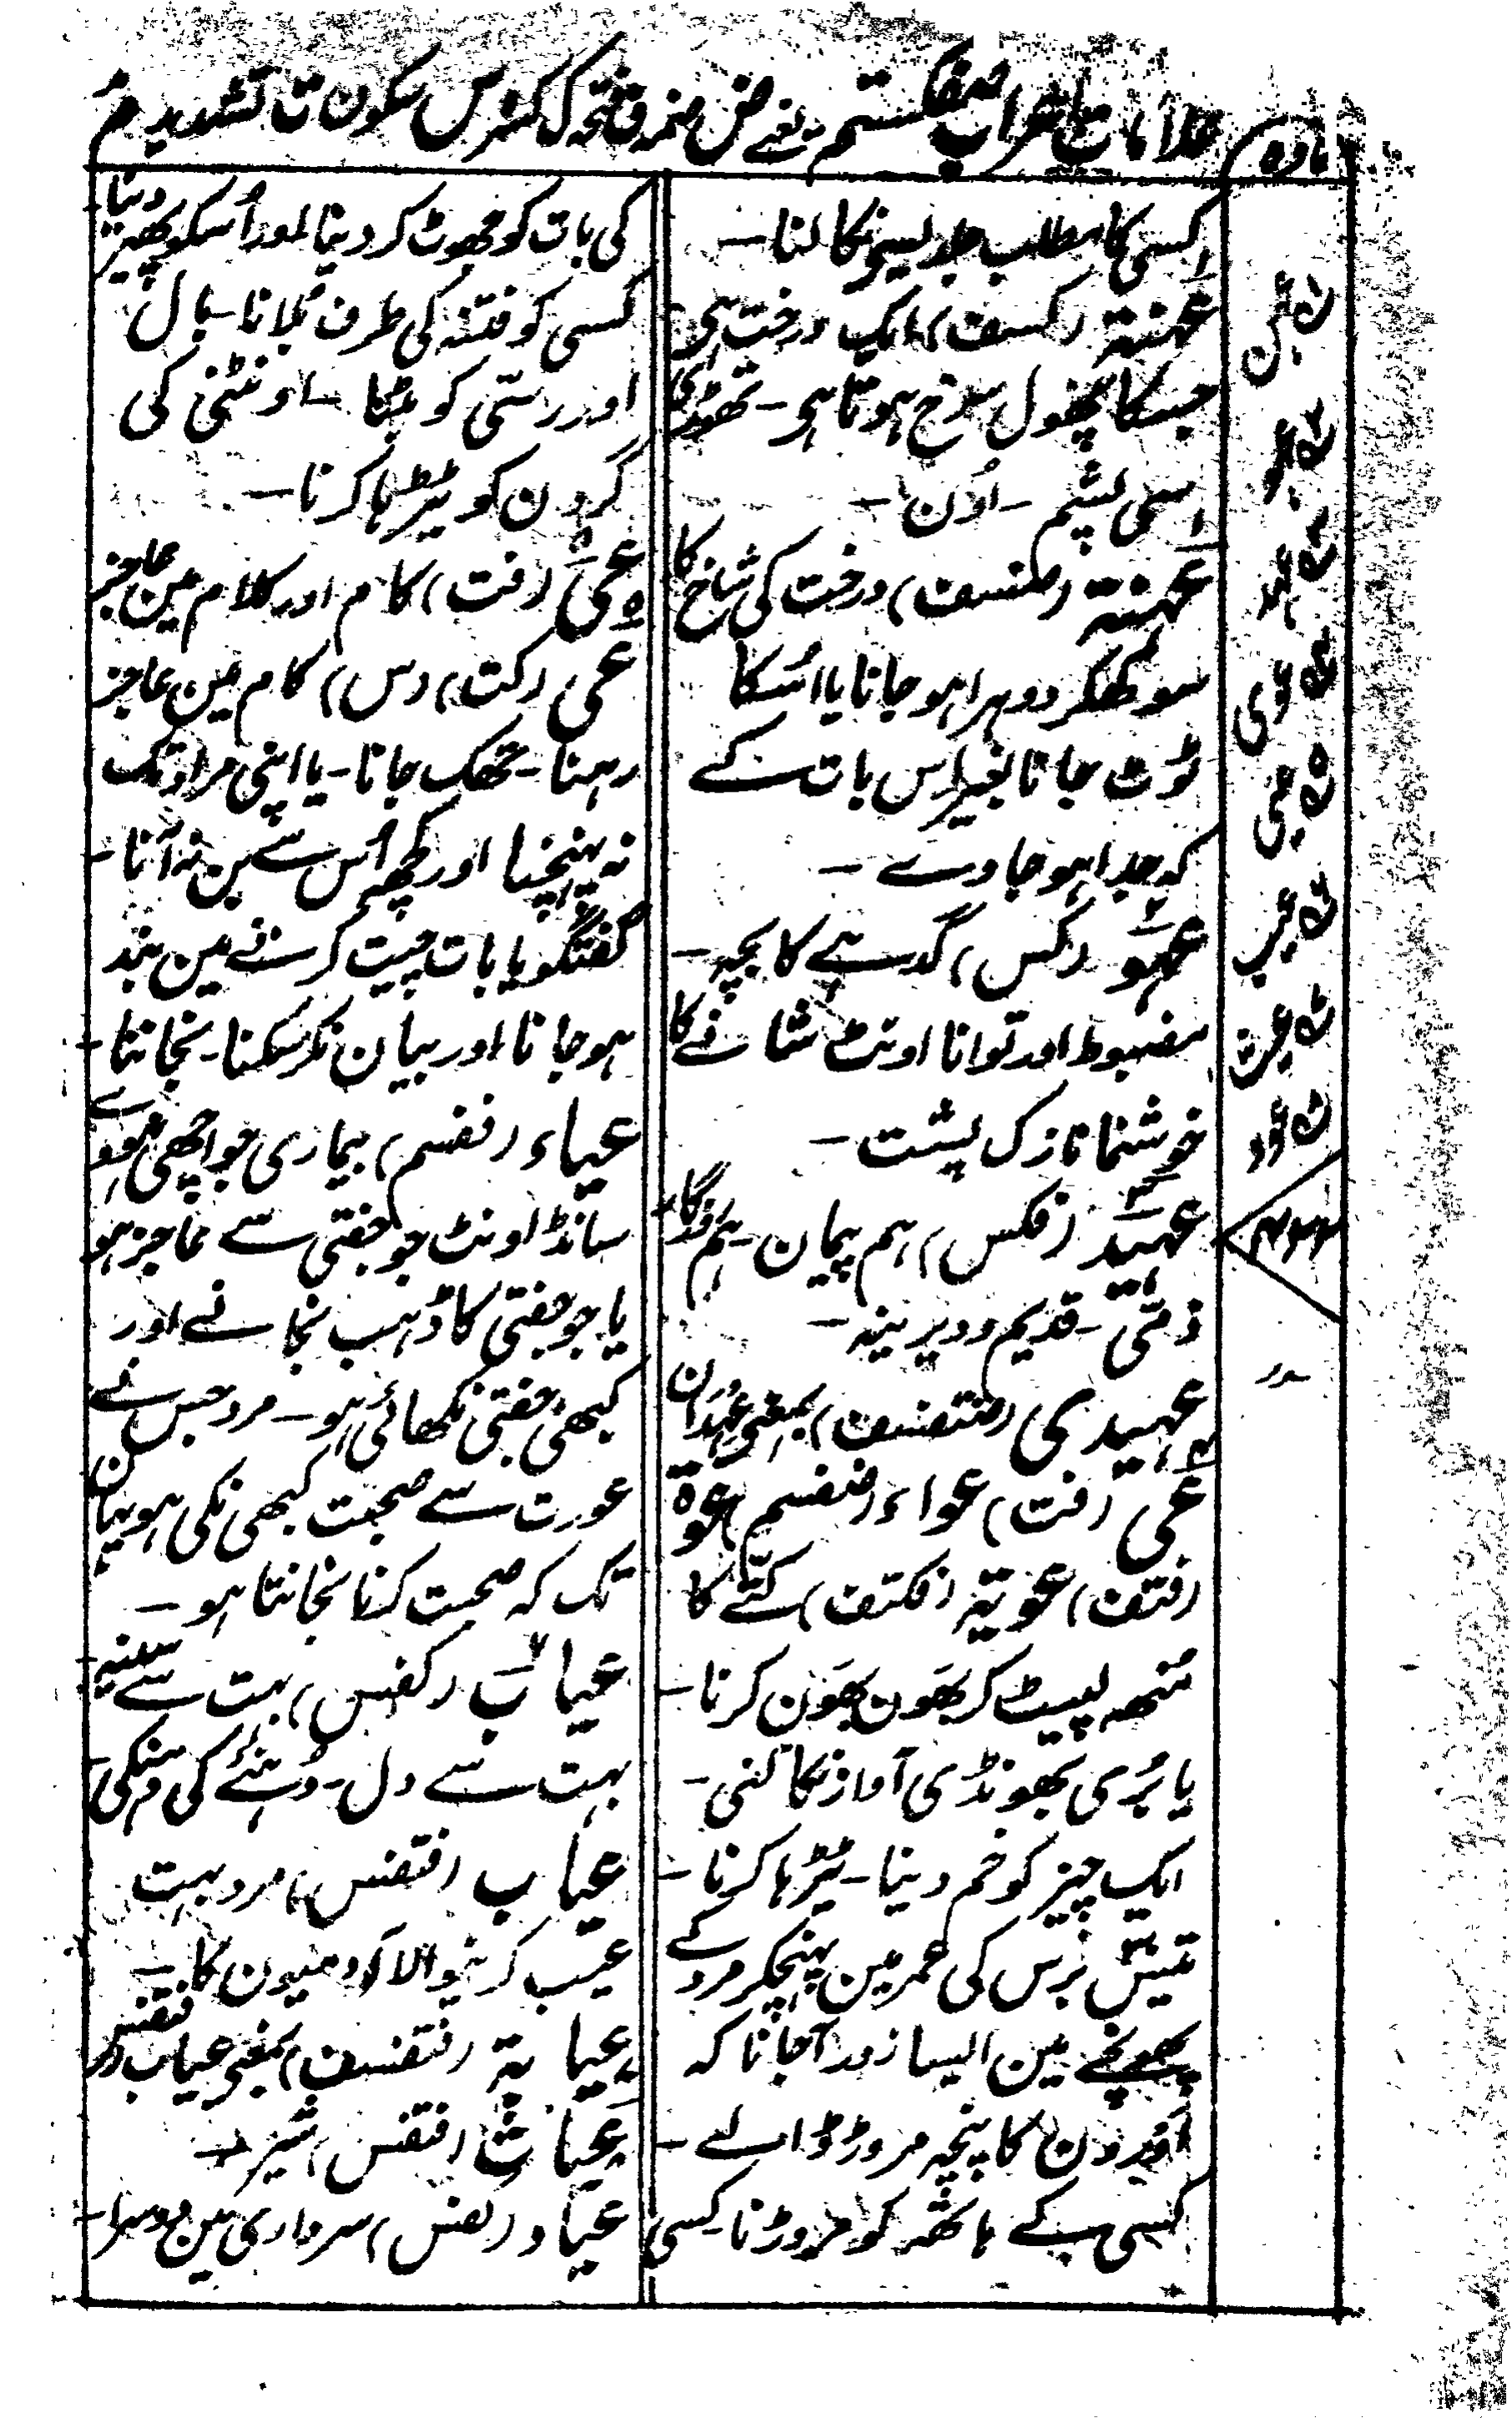 مادہ
علامات اعراب صفکستم یعنے ض ضمہ ف فتحہ ک کسرہ س سکون ت تشدید م
کسی کا مطلب جلدیسے نکالنا۔
عهنة (کسف) ایک درخت ہی
جسکا پھول سرخ ہوتا ہی۔ تھوڑی
سی پشم۔ اُون۔
عهنة (ضسف) درخت کی شاخ کا
سوکھکر دوہرا ہو جانا یا اُسکا
ٹوٹ جانا بغیر اس بات کے
کہ جدا ہو جاوے۔
عهو (کس) گدہے کا بچہ۔
مضبوط اور توانا اونٹ شانے کا
خوشنما نازک پشت۔
عهيد (فکس) ہم پیمان۔
ذمّی۔ قدیم و دیرینہ۔
عهيدى بمعنی عهدان
عى (فت) عواء (ضفسم) عوة
(فتف) عوية (فکتف) کتّے کا
منھ لپیٹ کر بھَون بھَون کرنا۔
یا بُری بھونڈی آواز نکالنی۔
ایک چیز کو خم دینا۔ ٹیڑہا کرنا۔
تیس برس کی عمر مین پہنچکر مرد کے
پھونچے مین ایسا زور آجانا کہ
اَورون کا پنجہ مروڑ ڈالے۔
کسی کے ہاتھ کو مروڑنا۔ کسی
کی بات کو جھوٹ کر دینا اور اُسکو پھیر دینا۔
کسی کو فتنہ کی طرف بُلانا۔ بال
اور رسّی کو بٹنا۔ اونٹنی کی
گردن کو ٹیڑہا کرنا۔
عى (فت) کام اور کلام مین عاجز
عى (کت) (س) کام مین عاجز
رہنا۔ تھک جانا۔ یا اپنی مراد تک
نہ پہنچنا اور کچھ اُس سے بن نہ آنا۔
گفتگو یا بات چیت کرنے مین بند
ہو جانا اور بیان نکر سکنا۔ نجاننا۔
عياء (فضسم) بیماری جو اچھی نہووے
سانڈ اونٹ جو جفتی سے عاجز ہو
یا جو جفتی کا ڈہب نجانے اور
کبھی جفتی نکھائی ہو۔ مرد جس نے
عورت سے صحبت کبھی نکی ہو یہان
تک کہ صحبت کرنا نجانتا ہو۔
عياب (کفس) بہت سے سینے
بہت سے دل۔
عياب (فتفس) مرد بہت
عیب کرنیوالا آدمیون کا۔
عيابة (فتفسف) بمعنی عياب (فتفس)
عياث (فتفس) شیر۔
عياد (فس) سرداری مین دوسرا۔